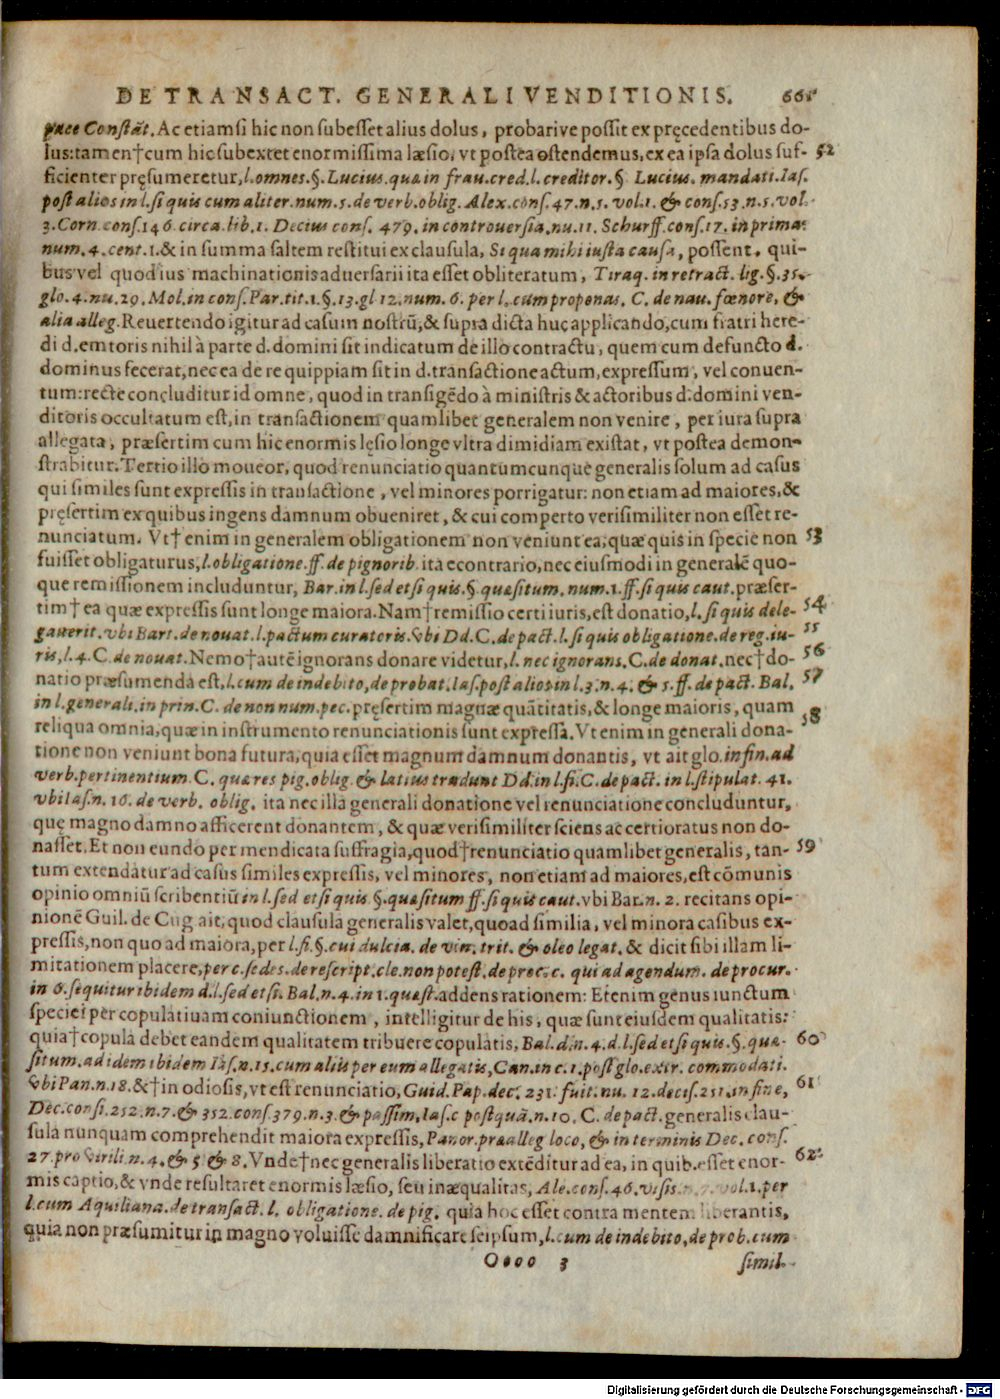 DE TRANSACT. GENERALI VENDITIONIS. 661
pace Constãt. Ac etiamsi hic non subesset alius dolus, probarive possit ex pręcedentibus do-
lus: tamen†cum hic subextet enormissima læsio, vt postea ostendemus, ex ea ipsa dolus suf- 52
ficienter pręsumeretur, l. omnes. §. Lucius. quæ in frau. cred. l. creditor. § Lucius. mandati. Ias.
post alios in l. si quis cum aliter. num. 5. de verb. oblig. Alex. cons. 47. n. 5. vol. 1. & cons. 53. n. 5. vol.
3. Corn. cons. 146. circa. lib. 1. Decius cons. 479. in controuersia. nu. 11. Schurff. cons. 17. in prima:
num. 4. cent. 1. & in summa saltem restitui ex clausula, Si qua mihi iusta causa, possent. qui-
bus vel quod ius machinationis aduersarii ita esset obliteratum, Tiraq. in retract. lig. §. 35.
glo. 4. nu. 29. Mol. in cons. Par. tit. 1. §. 13. gl 12. num. 6. per l. cum proponas. C. de nau. fœnore, &
alia alleg. Reuertendo igitur ad casum nostrũ, & supra dicta huc applicando, cum fratri here-
di d. emtoris nihil à parte d. domini sit indicatum de illo contractu, quem cum defuncto d.
dominus fecerat, nec ea de re quippiam sit in d. transactione actum, expressum, vel conuen-
tum: recte concluditur id omne, quod in transigẽdo à ministris & actoribus d. domini ven-
ditoris occultatum est, in transactionem quamlibet generalem non venire, per iura supra
allegata, præsertim cum hic enormis lęsio longe vltra dimidiam existat, vt postea demon-
strabitur. Tertio illo moueor, quod renunciatio quantumcunque generalis solum ad casus
qui similes sunt expressis in transactione, vel minores porrigatur: non etiam ad maiores, &
pręsertim ex quibus ingens damnum obueniret, & cui comperto verisimiliter non esset re-
nunciatum. Vt† enim in generalem obligationem non veniunt ea, quæ quis in specie non 53
fuisset obligaturus, l. obligatione. ff. de pignorib. ita econtrario, nec eiusmodi in generalẽ quo-
que remissionem includuntur, Bar. in l. sed et si quis. §. quæsitum. num. 1. ff. si quis caut. præser-
tim† ea quæ expressis sunt longe maiora. Nam†remissio certi iuris, est donatio, l. si quis dele- 54
gauerit. vbi Bart. de nouat. l. pactum curatoris. vbi Dd. C. de pact. l. si quis obligatione. de reg. iu- 55
ris, l. 4. C. de nouat. Nemo†autẽ ignorans donare videtur, l. nec ignorans. C. de donat. nec†do- 56
natio præsumenda est, l. cum de indebito, de probat. Ias. post alios in l. 3. n. 4. & 5. ff. de pact. Bal. 57
in l. generali. in prin. C. de non num. pec. pręsertim magnæ quãtitatis, & longe maioris, quam
reliqua omnia, quæ in instrumento renunciationis sunt expressa. Vt enim in generali dona- 58
tione non veniunt bona futura, quia esset magnum damnum donantis, vt ait glo. in fin. ad
verb. pertinentium. C. quæ res pig. oblig. & latius tradunt Dd. in l. fi. C. de pact. in l. stipulat. 41.
vbi Ias. n. 16. de verb. oblig. ita nec illa generali donatione vel renunciatione concluduntur,
quę magno damno afficerent donantem, & quæ verisimiliter sciens ac certioratus non do-
nasset. Et non eundo per mendicata suffragia, quod†renunciatio quamlibet generalis, tan- 59
tum extendatur ad casus similes expressis, vel minores, non etiam ad maiores, est cõmunis
opinio omniũ scribentiũ in l. sed et si quis. §. quæsitum ff. si quis caut. vbi Bar. n. 2. recitans opi-
nionẽ Guil. de Cug ait, quod clausula generalis valet, quoad similia, vel minora casibus ex-
pressis, non quo ad maiora, per l. fi. §. cui dulcia. de vin. trit. & oleo legat. & dicit sibi illam li-
mitationem placere, per c. sedes. de rescript. cle. non potest. de proc. c. qui ad agendum. de procur.
in 6. sequitur ibidem d. l. sed et si. Bal. n. 4. in 1. quæst. addens rationem: Etenim genus iunctum
speciei per copulatiuam coniunctionem, intelligitur de his, quæ sunt eiusdem qualitatis:
quia†copula debet eandem qualitatem tribuere copulatis, Bal. d. n. 4. d. l. sed et si quis. §. quæ- 60
situm. ad idem ibidem Ias. n. 15. cum aliis per eum allegatis, Can. in c. 1. post glo. extr. commodati.
vbi Pan. n. 18. &†in odiosis, vt est renunciatio, Guid. Pap. dec. 231. fuit. nu. 12. decis. 251. in fine, 61
Dec. consi. 252. n. 7. & 352. cons. 379. n. 3. & passim, Ias. c postquã. n. 10. C. de pact. generalis clau-
sula nunquam comprehendit maiora expressis, Panor. præalleg loco, & in terminis Dec. cons.
27. pro virili. n. 4. & 5 & 8. Vnde†nec generalis liberatio extẽditur ad ea, in quib. esset enor- 62
mis captio, & vnde resultaret enormis læsio, seu inæqualitas, Ale. cons. 46. visis. n. 7. vol. 1. per
l. cum Aquiliana. de transact. l. obligatione. de pig. quia hoc esset contra mentem liberantis,
quia non præsumitur in magno voluisse damnificare seipsum, l. cum de indebito, de prob. cum
Oooo 3 simil.
Digitalisierung gefördert durch die Deutsche Forschungsgemeinschaft - DFG